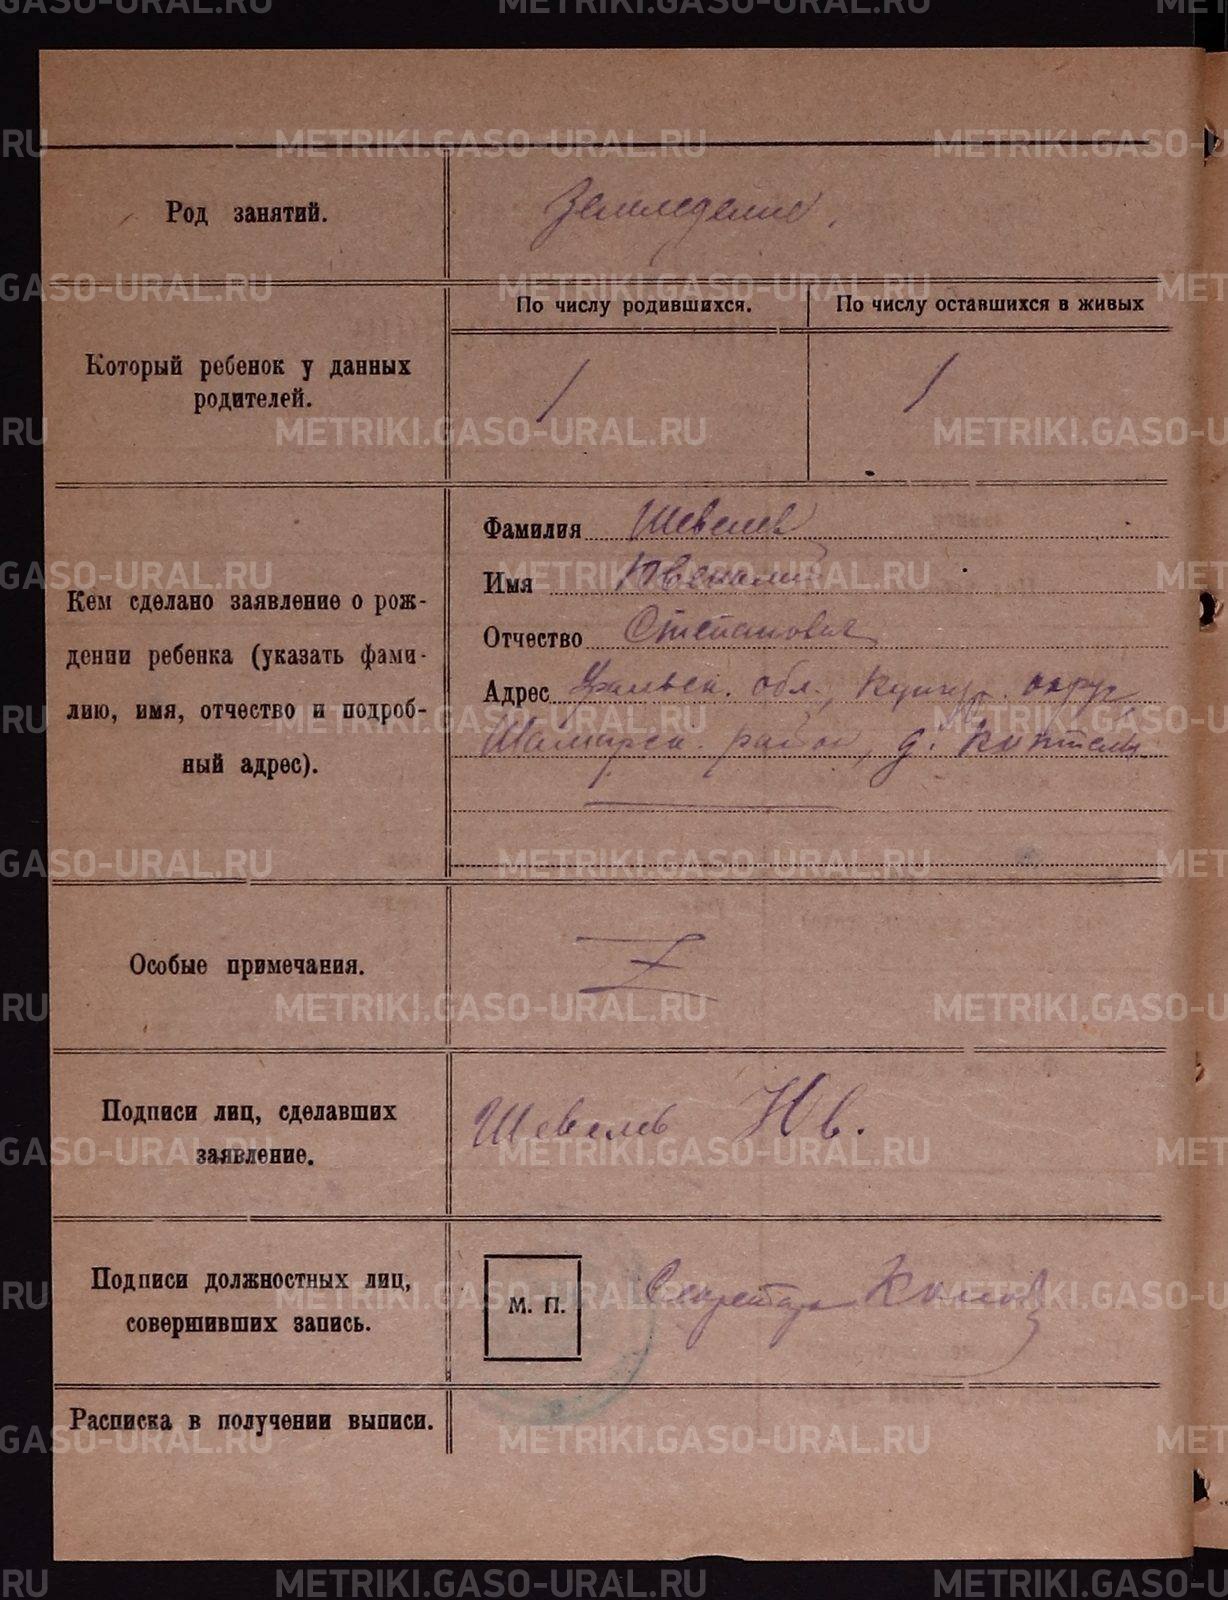 Род занятий.
Земледелие.
Который ребенок у данных
родителей.
По числу родившихся.
По числу оставшихся в живых
1
1
Кем сделано заявление о рож-
дении ребенка (указать фами-
лию, имя, отчество и подроб-
ный адрес).
Фамилия Шевелев
Имя Ювеналий
Отчество Степанович
Адрес Уральск. обл., Кунгур. округ,
Шамарск. район, д.
Особые примечания.
Z
Подписи лиц, сделавших
заявление.
Шевелев Юв.
Подписи должностных лиц,
совершивших запись.
М. П.
Секретарь
Расписка в получении выписи.
METRIKI.GASO-URAL.RU